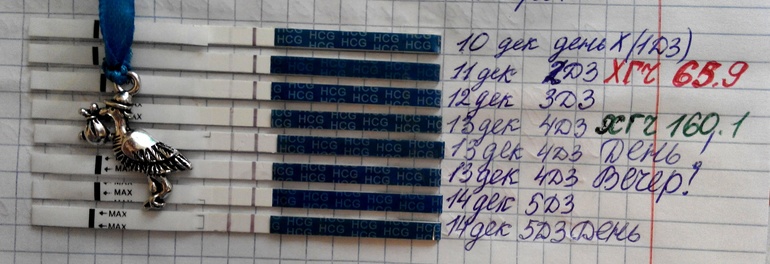 HCG HCG HCG HCG HCG 10 дек день X (1ДЗ)
11 дек 2ДЗ ХГЧ 65.9
HCG HCG HCG HCG 12 дек 3ДЗ
HCG HCG HCG HCG 13 дек 4ДЗ ХГЧ 160.1
HCG HCG HCG HCG 13 дек 4ДЗ День
←MAX HCG HCG HCG HCG 13 дек 4ДЗ Вечер!
←MAX HCG HCG HCG HCG 14 дек 5ДЗ
←MAX
←MAX HCG HCG HCG HCG 14 дек 5ДЗ День